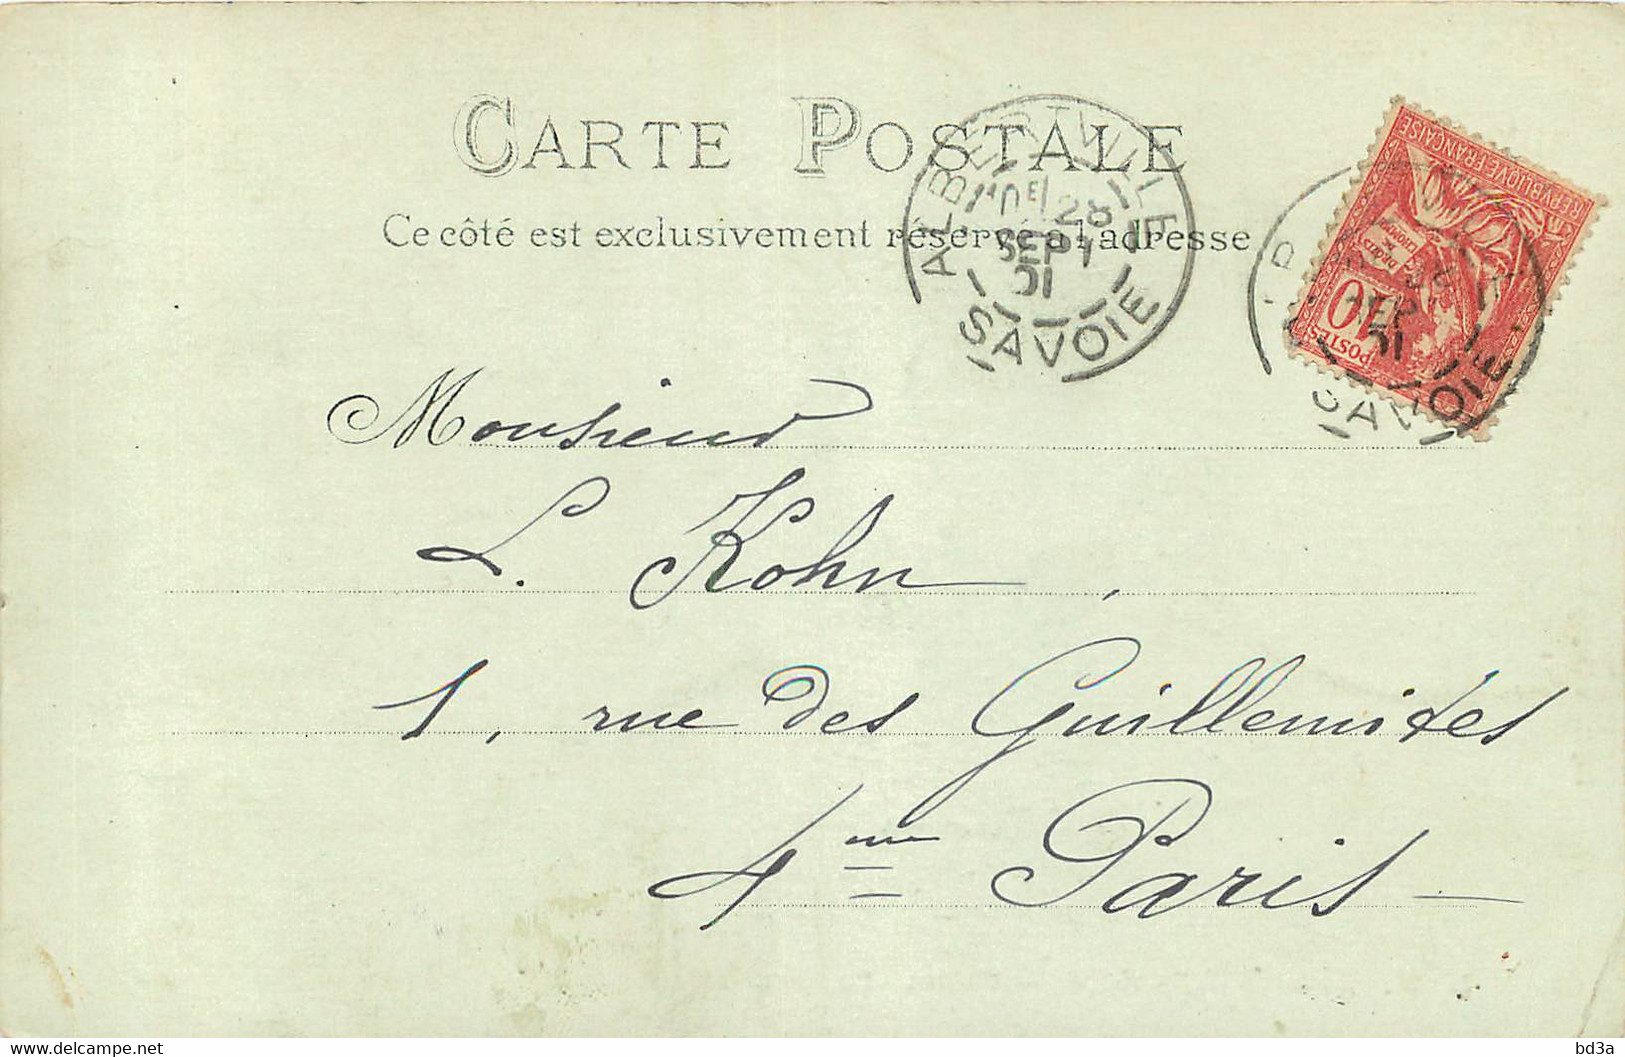 CARTE POSTALE
Ce côté est exclusivement réservé à l'adresse
ALBERTVILLE
28
SEPT
01
SAVOIE
REPVBLIQVE FRANÇAISE
DROITS
DE
L'HOMME
10
POSTES
SEPT
01
SAVOIE
Monsieur
L. Kohn,
1, rue des Guillemites
4me Paris –
delcampe.net
bd3a